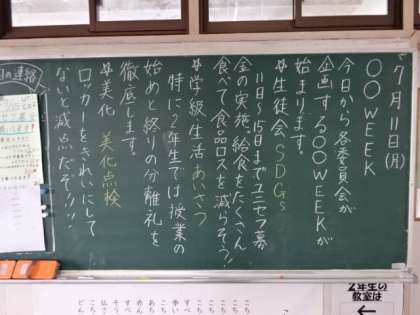 7月11日(月)
〇〇WEEK
今日から各委員会が
企画する〇〇WEEKが
始まります。
*生徒会 SDGs
11日〜15日までユニセフ募
金の実施。給食をたくさん
食べて食品ロスを減らそう!!
*学級生活 あいさつ
特に2年生では授業の
始めと終りの分離礼を
徹底します。
*美化 美化点検
ロッカーをきれいにして
ないと減点だぞ!!!
の連絡
2年生の
教室は